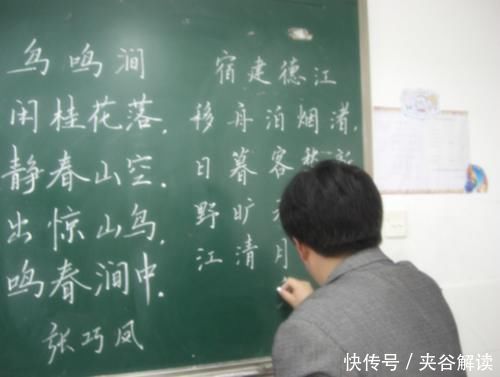 鸟鸣涧
闲桂花落,
静春山空.
出惊山鸟,
鸣春涧中.
张巧凤
宿建德江
移舟泊烟渚,
日暮客愁新
野旷天
江清月
快传号 / 夹谷解读